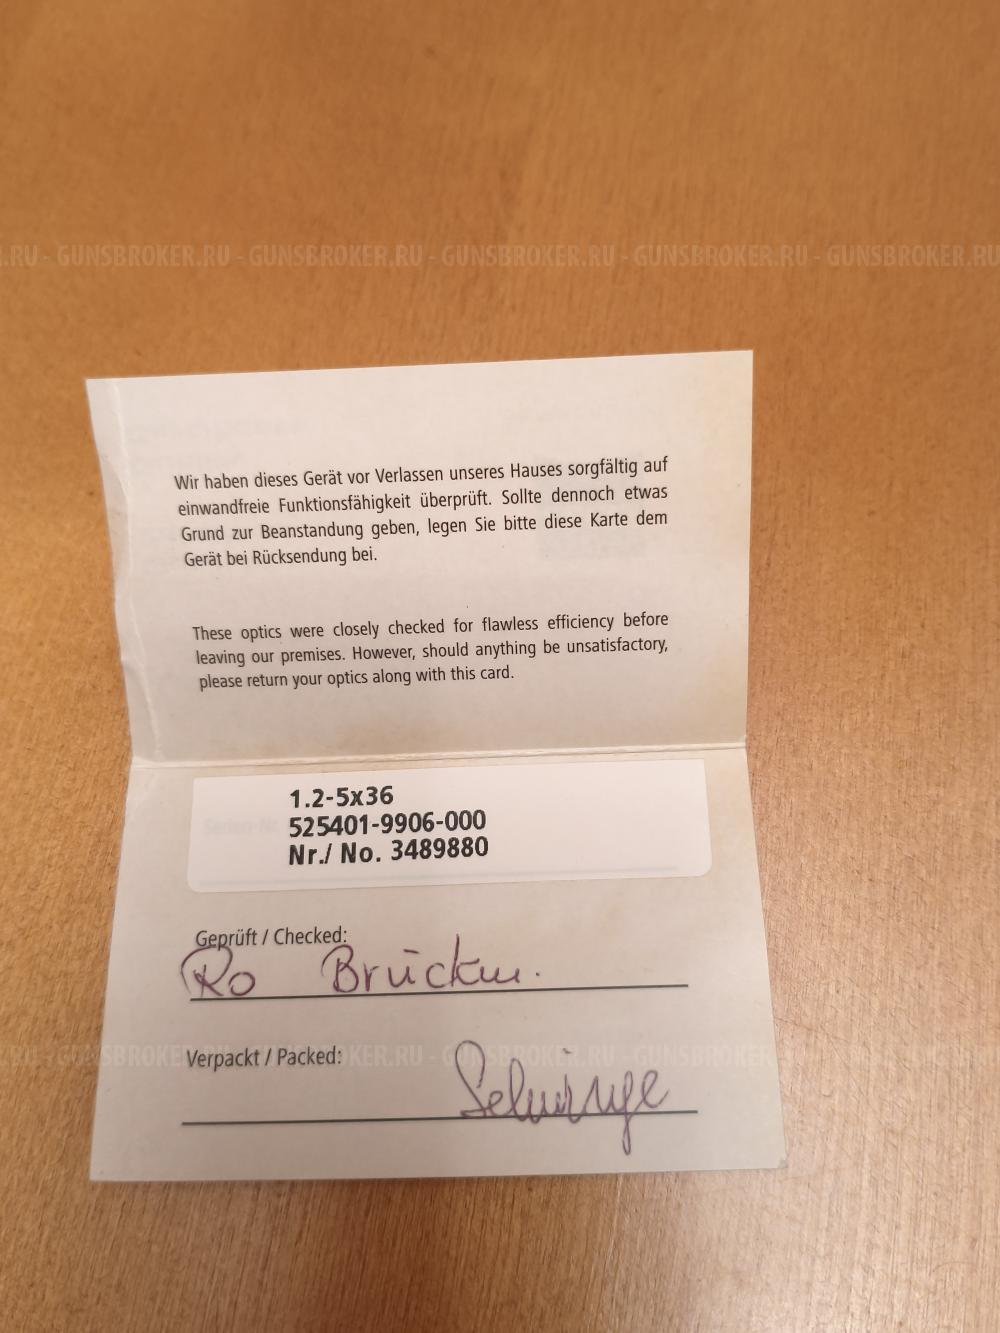 .RU - GUNSBROKER.RU - GUNSBROKER.RU - GUNSBROKER.RU - GUNSBROKER.RU - GUNSBROKER.RU
Wir haben dieses Gerät vor Verlassen unseres Hauses sorgfältig auf
einwandfreie Funktionsfähigkeit überprüft. Sollte dennoch etwas
Grund zur Beanstandung geben, legen Sie bitte diese Karte dem
Gerät bei Rücksendung bei.
These optics were closely checked for flawless efficiency before
leaving our premises. However, should anything be unsatisfactory,
please return your optics along with this card.
1.2-5x36
525401-9906-000
Nr./ No. 3489880
Geprüft / Checked:
Ro
Verpackt / Packed: